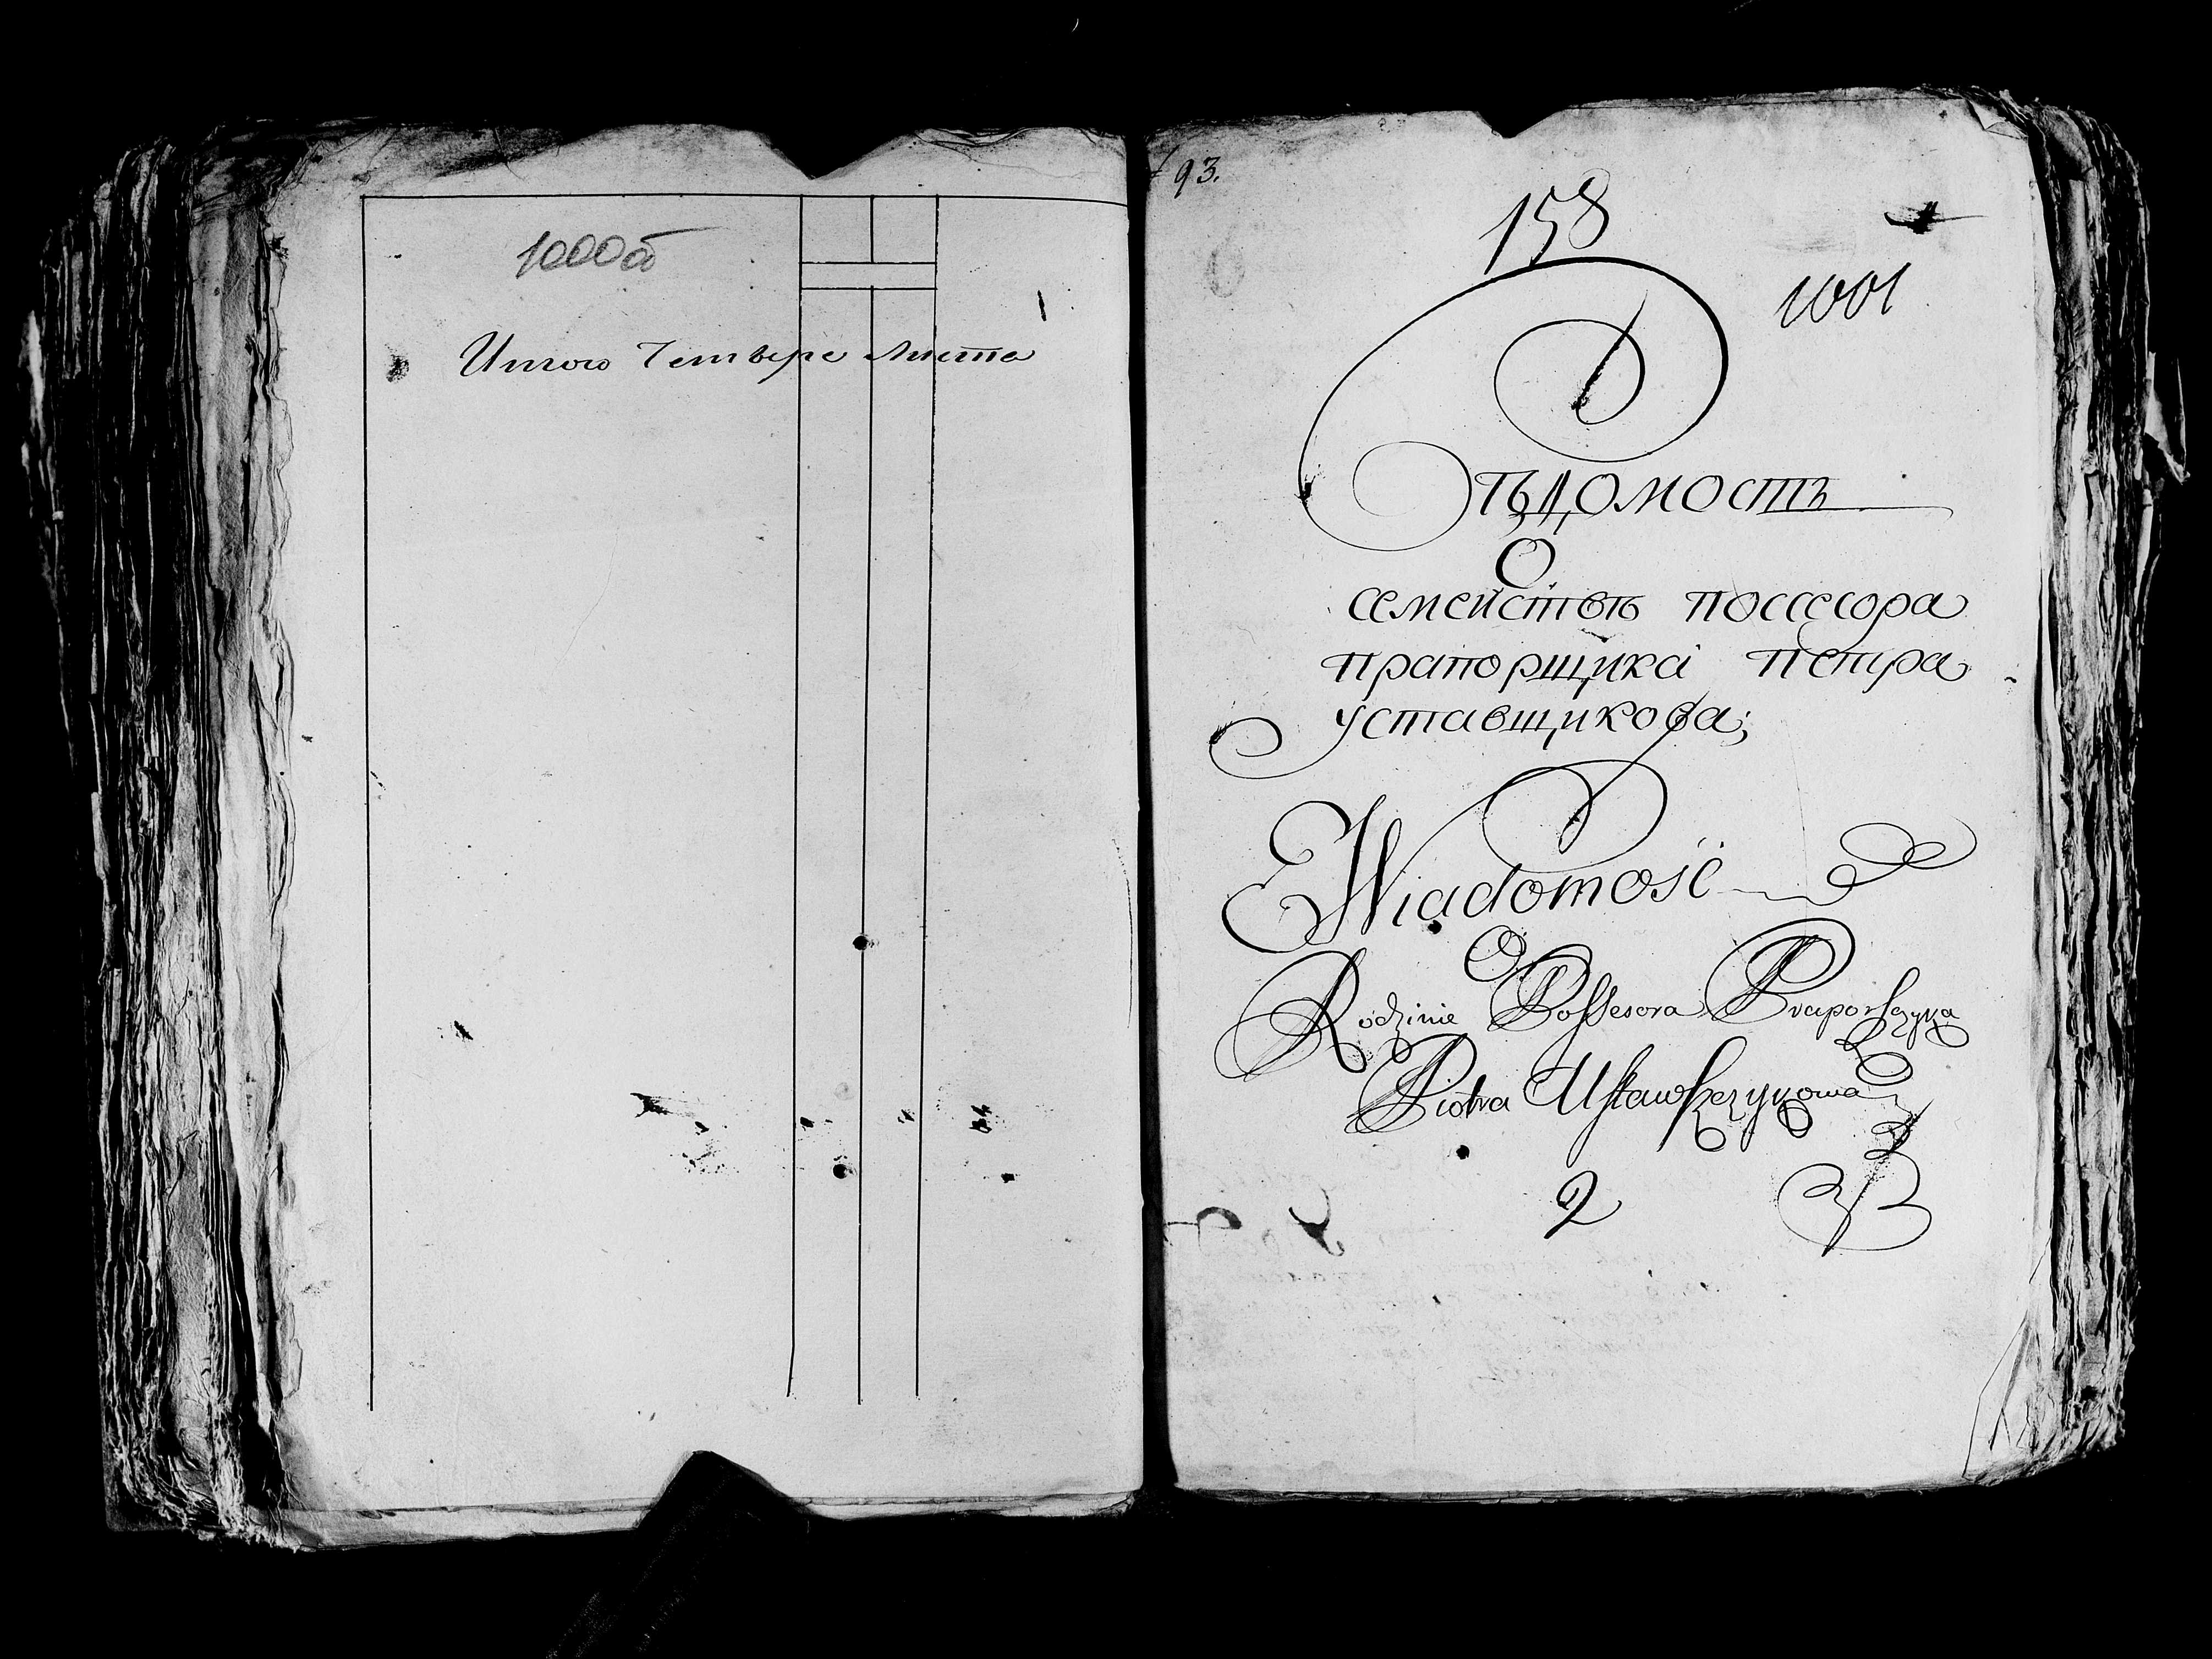 1000об
Итого Четыре листа
793.
158
1001
Вѣдомость
О
семействѣ поссесора
прапорщика петра
уставщикова;
Wiadomość
O
Rodzinie Possesora Praporszczyka
Piotra Ustawszczykowa
2